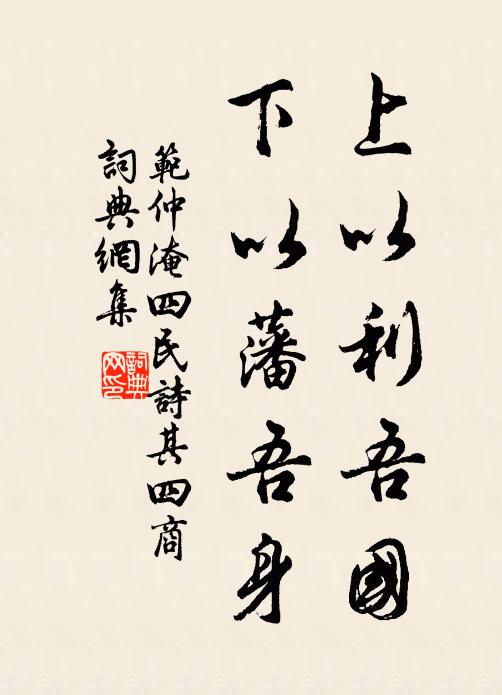 上以利吾國
下以藩吾身
範仲淹四民詩其四商
詞典網集
詞典网印